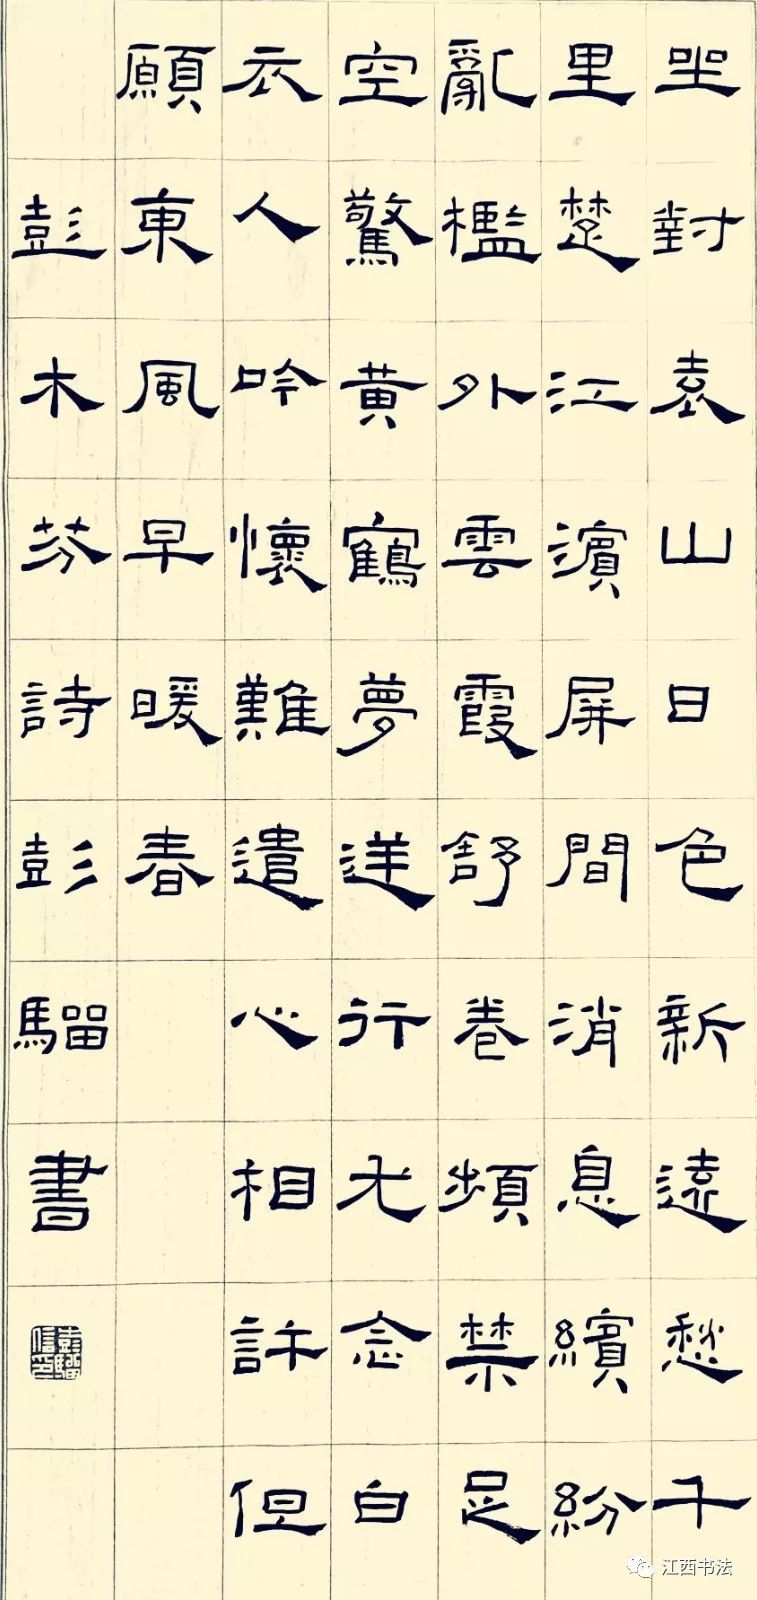 坐對袁山日色新遠愁千
里楚江濱屏間消息繽紛
亂檻外雲霞舒卷頻禁足
空驚黃鶴夢送行尤念白
衣人吟懷難遣心相許但
願東風早暖春
彭木芬詩彭騮書
彭騮信印
江西书法